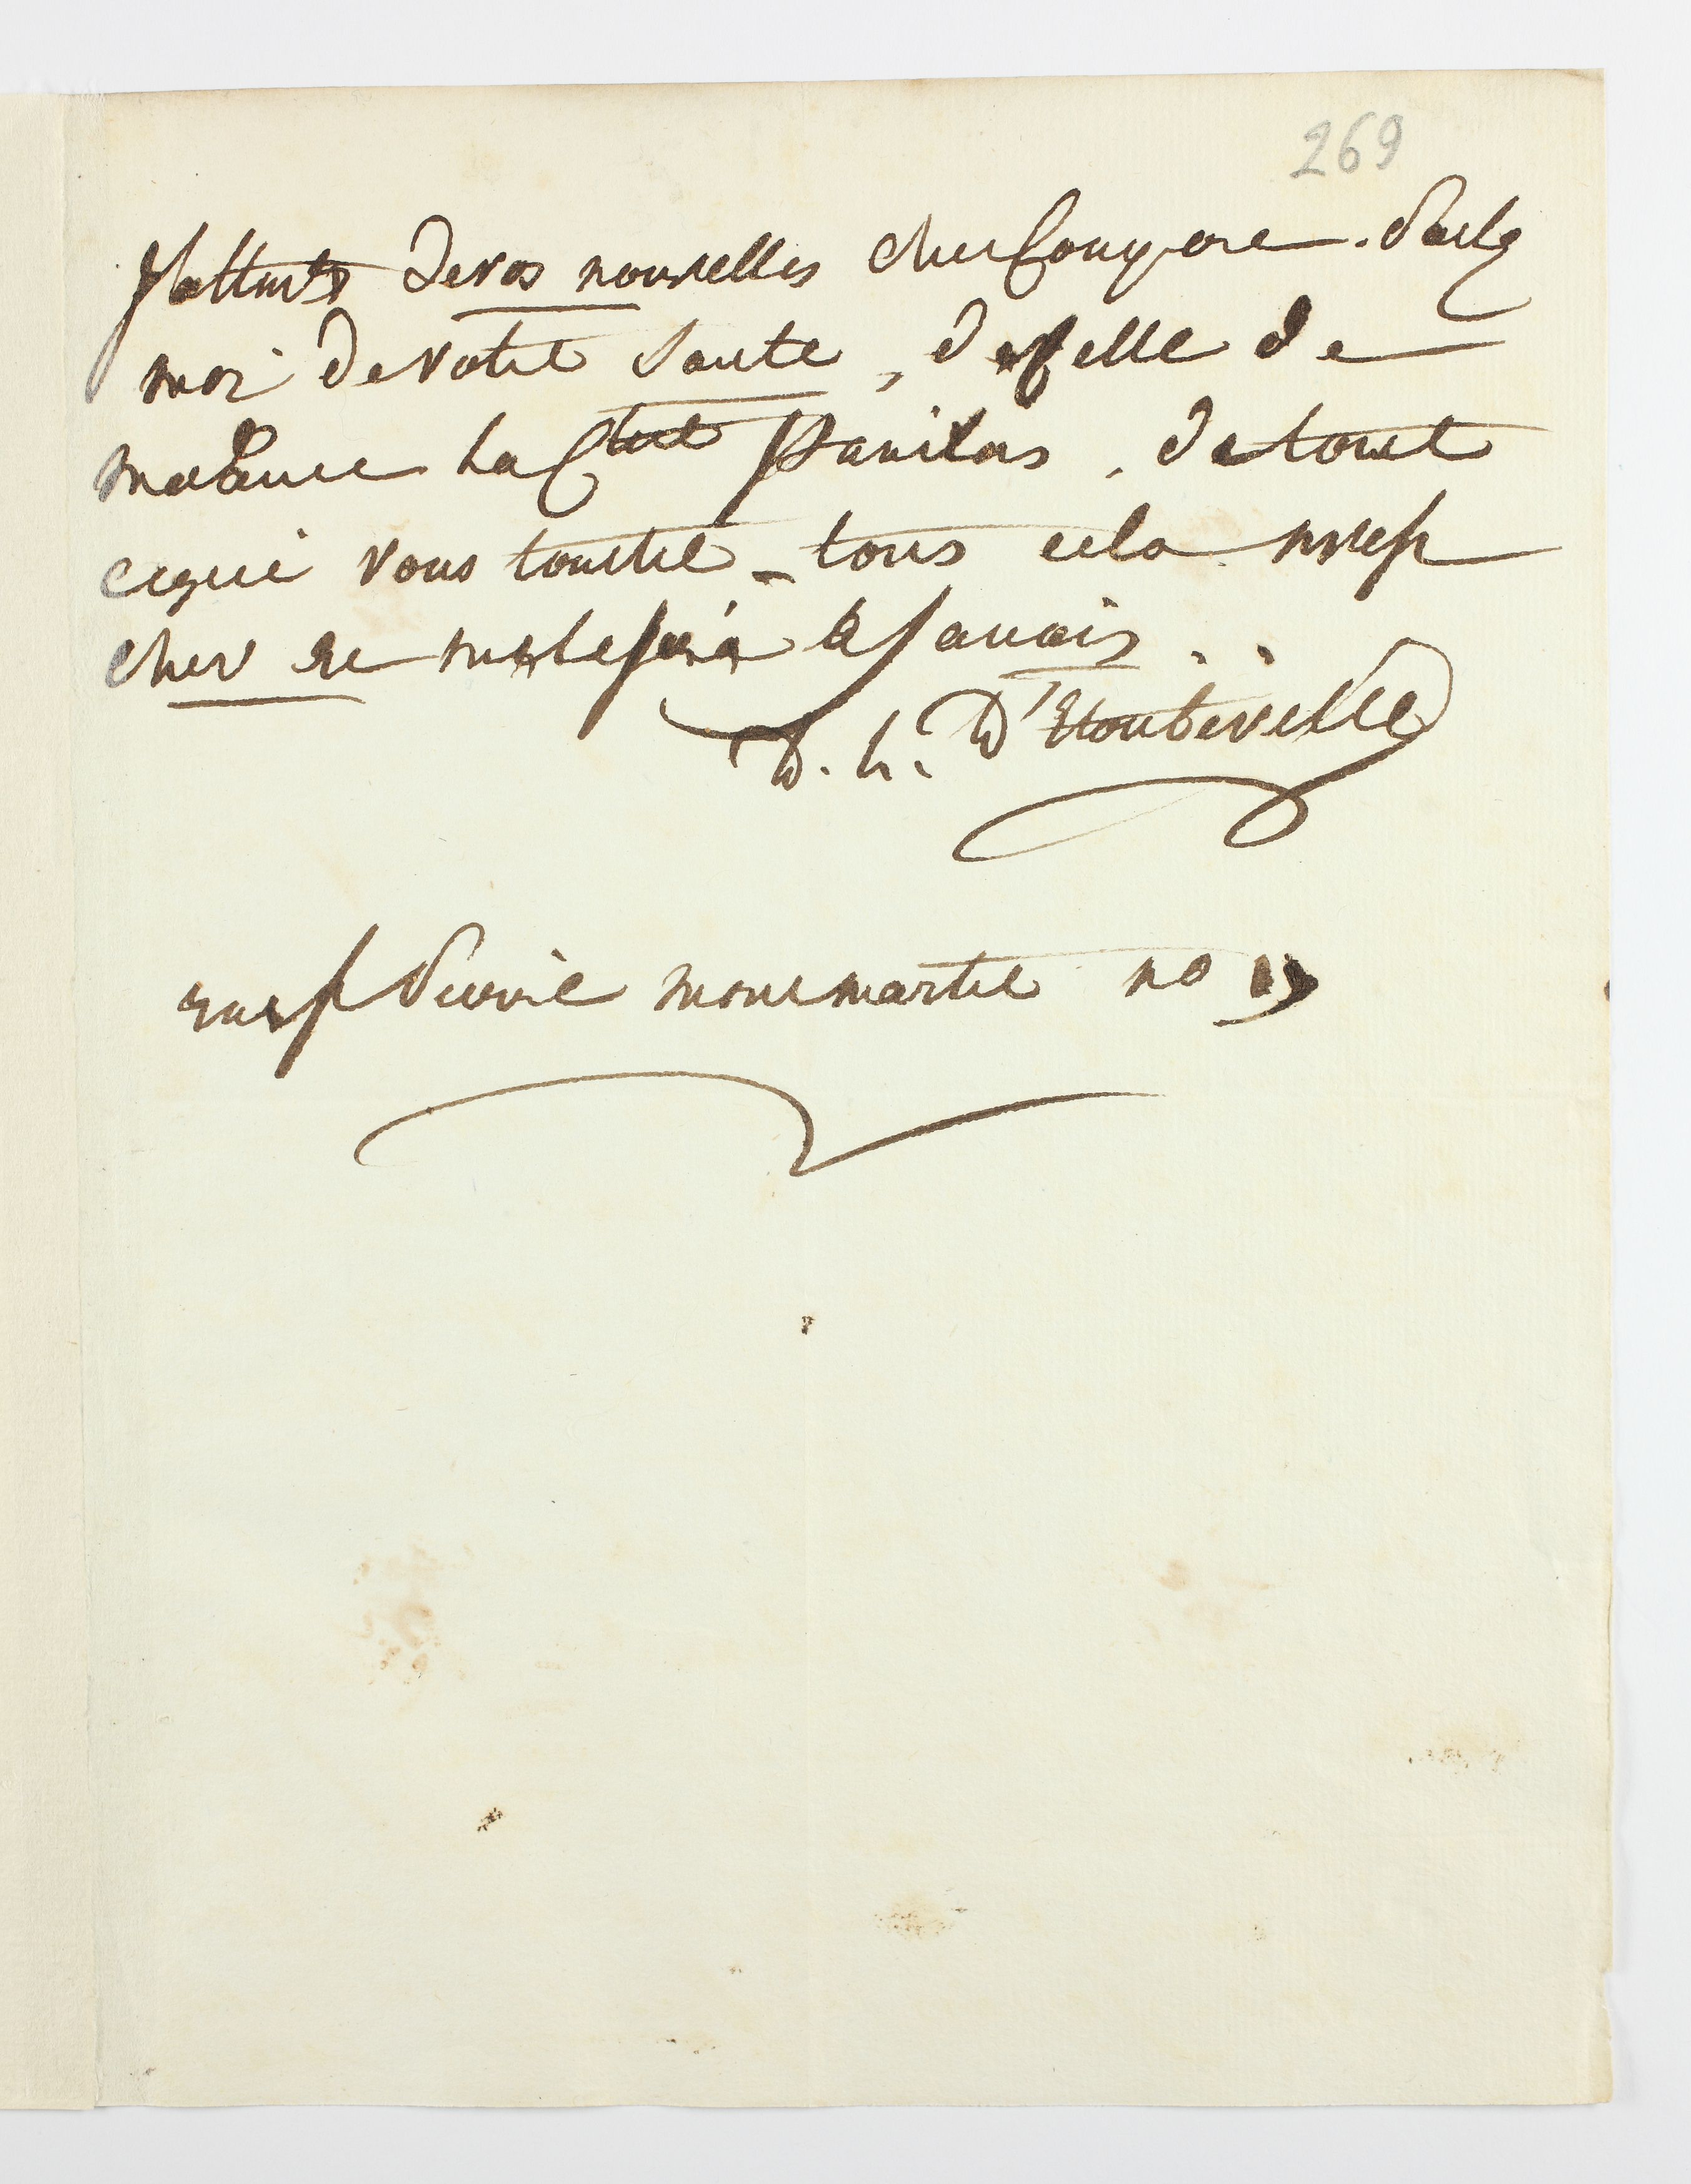 269
J'attends de vos nouvelles cher Compere. Parlez
moi de votre Santé, de Celle de
madame La Ctesse , de tout
ce qui vous touche - tous cela m'est
cher et me le sera a jamais . .
D. L. D'Houdeville
rue montmartre no